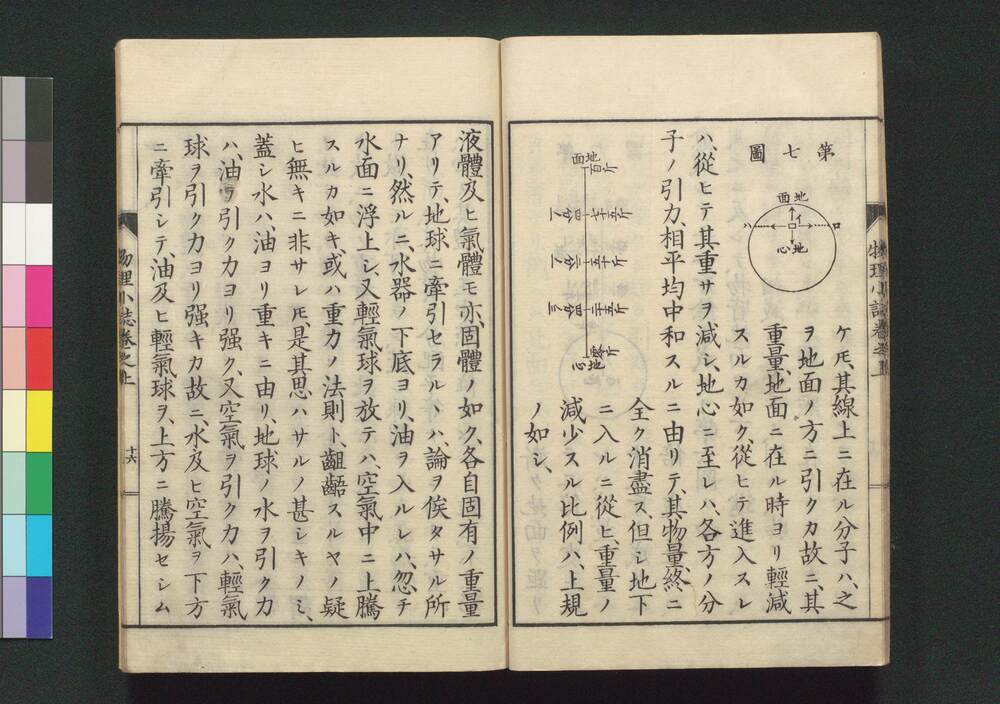 第七圖
地面
イ
ハ
ロ
地心
ケ𪜈、其線上ニ在ル分子ハ、之
ヲ地面ノ方ニ引クカ故ニ、其
重量、地面ニ在ル時ヨリ輕減
スルカ如ク、從ヒテ進入スレ
ハ、從ヒテ其重サヲ減シ、地心ニ至レハ、各方ノ分
子ノ引力、相平均中和スルニ由リテ、其物量、終ニ
全ク消盡ス、但シ地下
ニ入ルニ從ヒ、重量ノ
減少スル比例ハ、上規
ノ如シ、
地面
百斤
四分ノ一
七十五斤
四分ノ二
五十斤
四分ノ三
二十五斤
地心
零斤
物理小誌卷之上
液體及ヒ氣體モ亦、固體ノ如ク、各自固有ノ重量
アリテ、地球ニ牽引セラルヽハ、論ヲ俟タサル所
ナリ、然ルニ、水器ノ下底ヨリ、油ヲ入ルレハ、忽チ
水面ニ浮上シ、又輕氣球ヲ放テハ、空氣中ニ上騰
スルカ如キ、或ハ重力ノ法則ト、齟齬スルヤノ疑
ヒ無キニ非サレ𪜈、是其思ハサルノ甚シキノミ、
蓋シ水ハ、油ヨリ重キニ由リ、地球ノ水ヲ引ク力
ハ、油ヲ引ク力ヨリ强ク、又空氣ヲ引ク力ハ、輕氣
球ヲ引ク力ヨリ强キカ故ニ、水及ヒ空氣ヲ下方
ニ牽引シテ、油及ヒ輕氣球ヲ、上方ニ騰揚セシム
物理小誌卷之上
十六